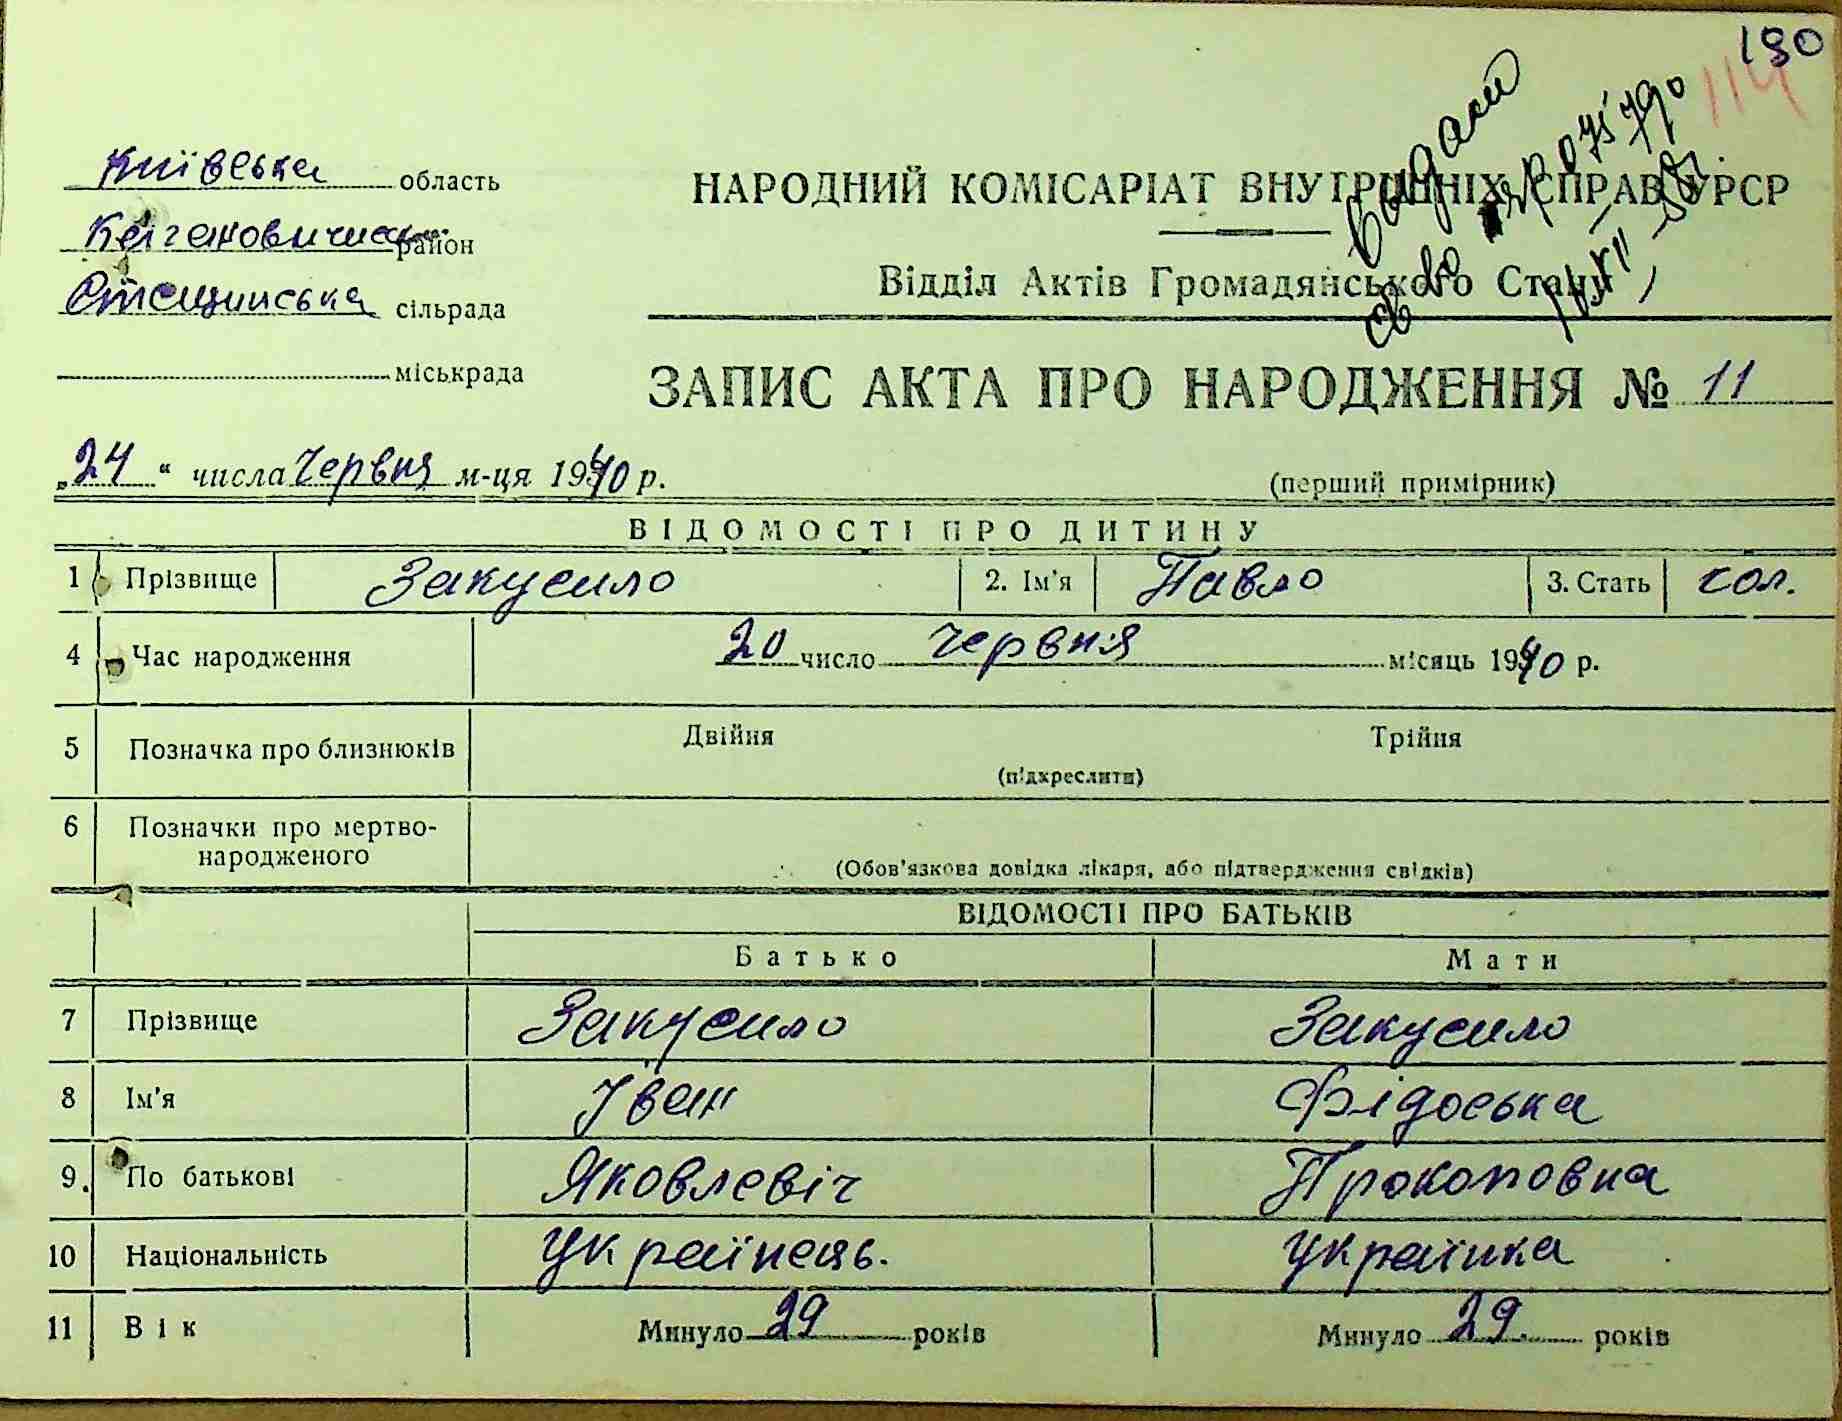 190
114
Київська область
Кагановичський район
Стещинська сільрада
міськрада
НАРОДНИЙ КОМІСАРІАТ ВНУТРІШНІХ СПРАВ УРСР
Відділ Актів Громадянського Стану
Видано
ЗАПИС АКТА ПРО НАРОДЖЕННЯ № 11
„24“ числа Червня м-ця 1940 р.
(перший примірник)
ВІДОМОСТІ ПРО ДИТИНУ
1 Прізвище Закусило 2. Ім'я Павло 3. Стать чол.
4 Час народження 20 число Червня місяць 1940 р.
5 Позначка про близнюків Двійня Трійня
(підкреслити)
6 Позначки про мертво-
народженого
(Обов'язкова довідка лікаря, або підтвердження свідків)
ВІДОМОСТІ ПРО БАТЬКІВ
Батько Мати
7 Прізвище Закусило Закусило
8 Ім'я Іван Фідоська
9. По батькові Яковлевіч Прокоповна
10 Національність Українець. Українка
11 Вік Минуло 29 років Минуло 29. років